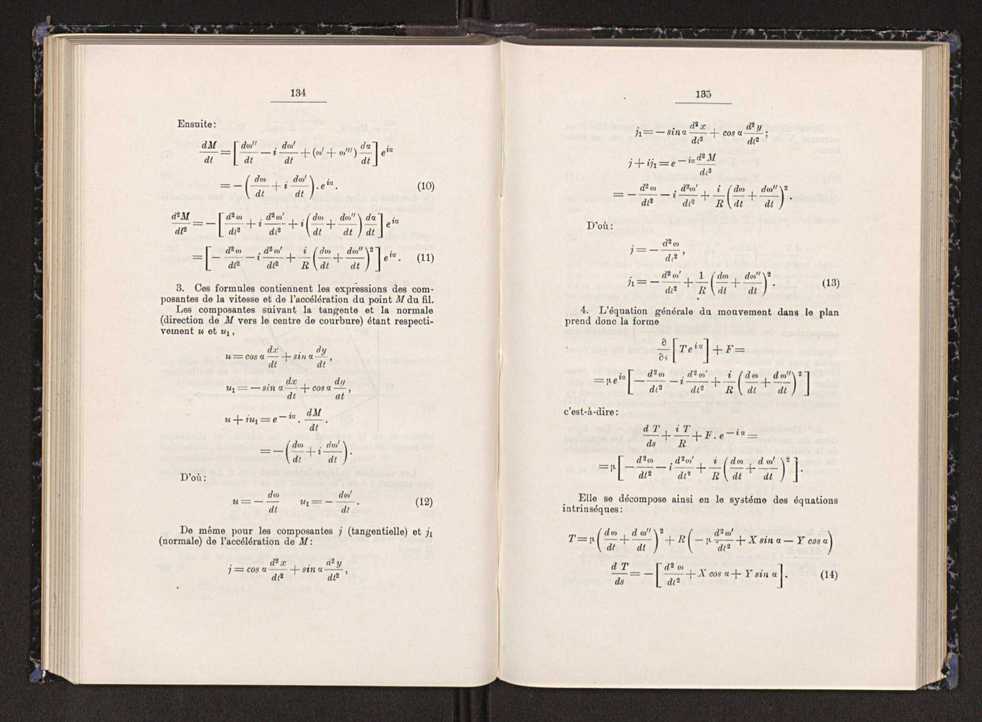 134
Ensuite:
dM/dt = [dω''/dt − i dω'/dt + (ω' + ω''') da/dt] e^{ia}
= − (dω/dt + i dω'/dt) . e^{ia}. (10)
d²M/dt² = − [d²ω/dt² + i d²ω'/dt² + i (dω/dt + dω''/dt) da/dt] e^{ia}
= [− d²ω/dt² − i d²ω'/dt² + i/R (dω/dt + dω''/dt)²] e^{ia}. (11)
3. Ces formules contiennent les expressions des com-
posantes de la vitesse et de l'accélération du point M du fil.
Les composantes suivant la tangente et la normale
(direction de M vers le centre de courbure) étant respecti-
vement u et u₁,
u = cos α dx/dt + sin α dy/dt,
u₁ = − sin α dx/dt + cos α dy/at,
u + iu₁ = e^{−ia} . dM/dt.
= − (dω/dt + i dω'/dt).
D'où:
u = − dω/dt u₁ = − dω'/dt. (12)
De même pour les composantes j (tangentielle) et j₁
(normale) de l'accélération de M:
j = cos α d²x/dt² + sin α d²y/dt²,
135
j₁ = − sin α d²x/dt² + cos α d²y/dt²;
j + ij₁ = e^{−ia} d²M/dt²
= − d²ω/dt² − i d²ω'/dt² + i/R (dω/dt + dω''/dt)².
D'où:
j = − d²ω/dt²,
j₁ = − d²ω'/dt² + 1/R (dω/dt + dω''/dt)². (13)
4. L'équation générale du mouvement dans le plan
prend donc la forme
∂/∂s [T e^{ia}] + F =
= μ e^{ia} [− d²ω/dt² − i d²ω'/dt² + i/R (dω/dt + dω''/dt)²]
c'est-à-dire:
d T/ds + i T/R + F . e^{−ia} =
= μ [− d²ω/dt² − i d²ω'/dt² + i/R (dω/dt + d ω'/dt)²].
Elle se décompose ainsi en le systéme des équations
intrinséques:
T = μ (dω/dt + d ω''/dt)² + R (− μ d²ω'/dt² + X sin α − Y cos α)
d T/ds = − [d² ω/dt² + X cos α + Y sin α]. (14)